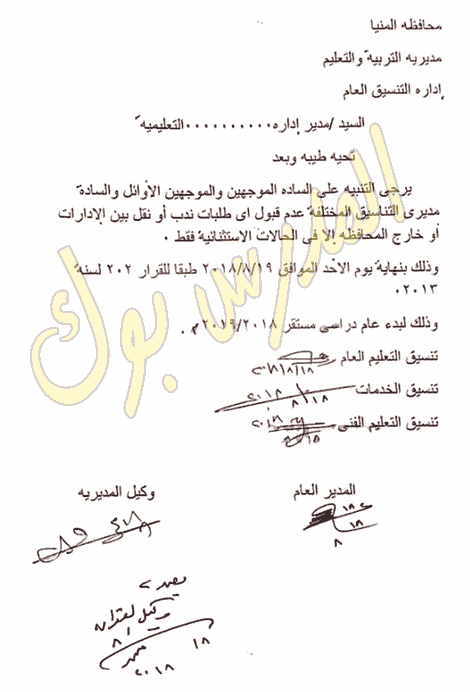 محافظه المنيا
مديريه التربيه والتعليم
إداره التنسيق العام
السيد /مدير إداره٠٠٠٠٠٠٠٠٠٠التعليميه
تحيه طيبه وبعد
يرجى التنبيه على الساده الموجهين والموجهين الأوائل والسادة
مديرى التناسيق المختلفة عدم قبول اى طلبات ندب أو نقل بين الإدارات
أو خارج المحافظه إلا فى الحالات الاستثنائية فقط ٠
وذلك بنهاية يوم الأحد الموافق ٢٠١٨/٨/١٩ طبقا للقرار ٢٠٢ لسنة
٢٠١٣
وذلك لبدء عام دراسى مستقر ٢٠١٩/٢٠١٨م ٠
تنسيق التعليم العام
٢٠١٨/٨/١٨
تنسيق الخدمات
٢٠١٨
٨/١٨
تنسيق التعليم الفنى
المدير العام
وكيل المديريه
١٨
٨
يعتمد
٨/
١٨
٢٠١٨
المدرس بوك